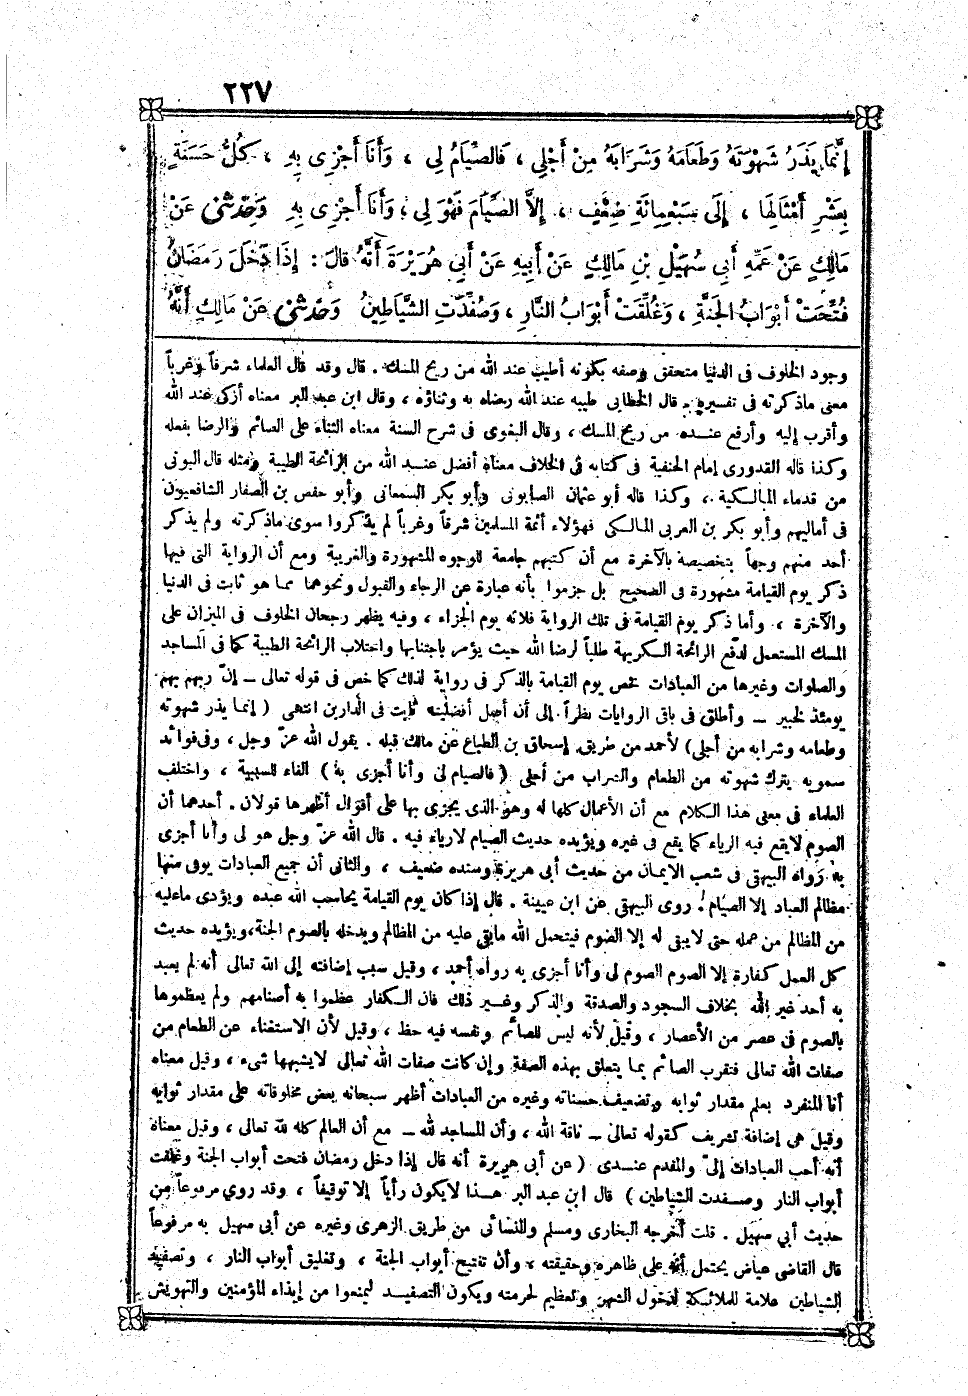 ٢٢٧
إِنَّمَا يَذَرُ شَهْوَتَهُ وَطَعَامَهُ وَشَرَابَهُ مِنْ أَجْلِي ، فَالصِّيَامُ لِي ، وَأَنَا أَجْزِى بِهِ ، كُلُّ حَسَنَةٍ
بِعَشْرِ أَمْثَالِهَا ، إِلَى سَبْعِمِائَةِ ضِعْفٍ ، إِلاَّ الصِّيَامَ فَهْوَ لِي ، وَأَنَا أَجْزِى بِهِ وَحَدَّثَنِي عَنْ
مَالِكٍ عَنْ عَمِّهِ أَبِي سُهَيْلِ بْنِ مَالِكٍ عَنْ أَبِيهِ عَنْ أَبِي هُرَيْرَةَ أَنَّهُ قَالَ : إِذَا دَخَلَ رَمَضَانُ
فُتِّحَتْ أَبْوَابُ الْجَنَّةِ ، وَغُلِّقَتْ أَبْوَابُ النَّارِ ، وَصُفِّدَتِ الشَّيَاطِينُ وَحَدَّثَنِي عَنْ مَالِكٍ أَنَّهُ
وجود الخلوف فى الدنيا متحقق وصفه بكونه أطيب عند الله من ريح المسك . قال وقد قال العلماء شرفاً وغرباً
معنى ماذكرته فى تفسيره قال الخطابى طيبه عند الله رضاه به وثناؤه ، وقال ابن عبد البر معناه أزكى عند الله
وأقرب إليه وأرفع عنده من ريح المسك ، وقال البغوى فى شرح السنة معناه الثناء على الصائم والرضا بفعله
وكذا قاله القدورى إمام الحنفية فى كتابه فى الخلاف معناه أفضل عند الله من الرائحة الطيبة ومثله قال البونى
من قدماء المالكية ، وكذا قاله أبو عثمان الصابونى وأبو بكر السمعانى وأبو حفص بن الصفار الشافعيون
فى أماليهم وأبو بكر بن العربى المالكى فهؤلاء أئمة المسلمين شرقاً وغرباً لم يذكروا سوى ماذكرته ولم يذكر
أحد منهم وجهاً بتخصيصه بالآخرة مع أن كتبهم جامعة للوجوه المشهورة والغريبة ومع أن الرواية التى فيها
ذكر يوم القيامة مشهورة فى الصحيح بل جزموا بأنه عبارة عن الرجاء والقبول ونحوهما مما هو ثابت فى الدنيا
والآخرة ، وأما ذكر يوم القيامة فى تلك الرواية فلأنه يوم الجزاء ، وفيه يظهر رجحان الخلوف فى الميزان على
المسك المستعمل لدفع الرائحة الكريهة طلباً لرضا الله حيث يؤمر باجتنابها واختلاب الرائحة الطيبة كما فى المساجد
والصلوات وغيرها من العبادات خص يوم القيامة بالذكر فى رواية لذلك كما خص فى قوله تعالى ــ إنّ ربهم بهم
يومئذ لخبير ــ وأطلق فى باقى الروايات نظراً إلى أن أصل أفضليته ثابت فى الدارين انتهى ( إنما يذر شهوته
وطعامه وشرابه من أجلى) لأحمد من طريق إسحاق بن الطباع عن مالك قبله . يقول الله عزّ وجل ، وفى فوائد
سمويه يترك شهوته من الطعام والشراب من أجلى ( فالصيام لى وأنا أجزى به ) الفاء للسببية ، واختلف
العلماء فى معنى هذا الكلام مع أن الأعمال كلها له وهو الذى يجزى بها على أقوال أظهرها قولان . أحدهما أن
الصوم لايقع فيه الرياء كما يقع فى غيره ويؤيده حديث الصيام لارياء فيه . قال الله عزّ وجل هو لى وأنا أجزى
به رواه البيهقى فى شعب الايمان من حديث أبى هريرة وسنده ضعيف ، والثانى أن جميع العبادات يوفى منها
مظالم العباد إلا الصيام . روى البيهقى عن ابن عيينة . قال إذا كان يوم القيامة يحاسب الله عبده ويؤدى ماعليه
من المظالم من عمله حتى لايبقى له إلا الصوم فيتحمل الله مابقى عليه من المظالم ويدخله بالصوم الجنة،ويؤيده حديث
كل العمل كفارة إلا الصوم الصوم لى وأنا أجزى به رواه أحمد ، وقيل سبب إضافته إلى الله تعالى أنه لم يعبد
به أحد غير الله بخلاف السجود والصدقة والذكر وغير ذلك فان الكفار عظموا به أصنامهم ولم يعظموها
بالصوم فى عصر من الأعصار ، وقيل لأنه ليس للصائم ونفسه فيه حظ ، وقيل لأن الاستغناء عن الطعام من
صفات الله تعالى فتقرب الصائم بما يتعلق بهذه الصفة وإن كانت صفات الله تعالى لايشبهها شىء ، وقيل معناه
أنا المنفرد بعلم مقدار ثوابه وتضعيف حسناته وغيره من العبادات أظهر سبحانه بعض مخلوقاته على مقدار ثوابه
وقيل هى إضافة تشريف كقوله تعالى ــ ناقة الله ، وأن المساجد لله ــ مع أن العالم كله لله تعالى ، وقيل معناه
أنه أحب العبادات إلىّ والمقدم عندى ( عن أبى هريرة أنه قال إذا دخل رمضان فتحت أبواب الجنة وغلقت
أبواب النار وصفدت الشياطين ) قال ابن عبد البر هذا لايكون رأياً إلا توقيفاً ، وقد روي مرفوعاً من
حديث أبي سهيل . قلت أخرجه البخارى ومسلم والنسائى من طريق الزهرى وغيره عن أبى سهيل به مرفوعاً
قال القاضى عياض يحتمل أنه على ظاهره وحقيقته وأن تفتيح أبواب الجنة ، وتغليق أبواب النار ، وتصفيد
الشياطين علامة للملائكة لدخول الشهر وتعظيم لحرمته ويكون التصفيد ليمنعوا من إيذاء المؤمنين والتهويش